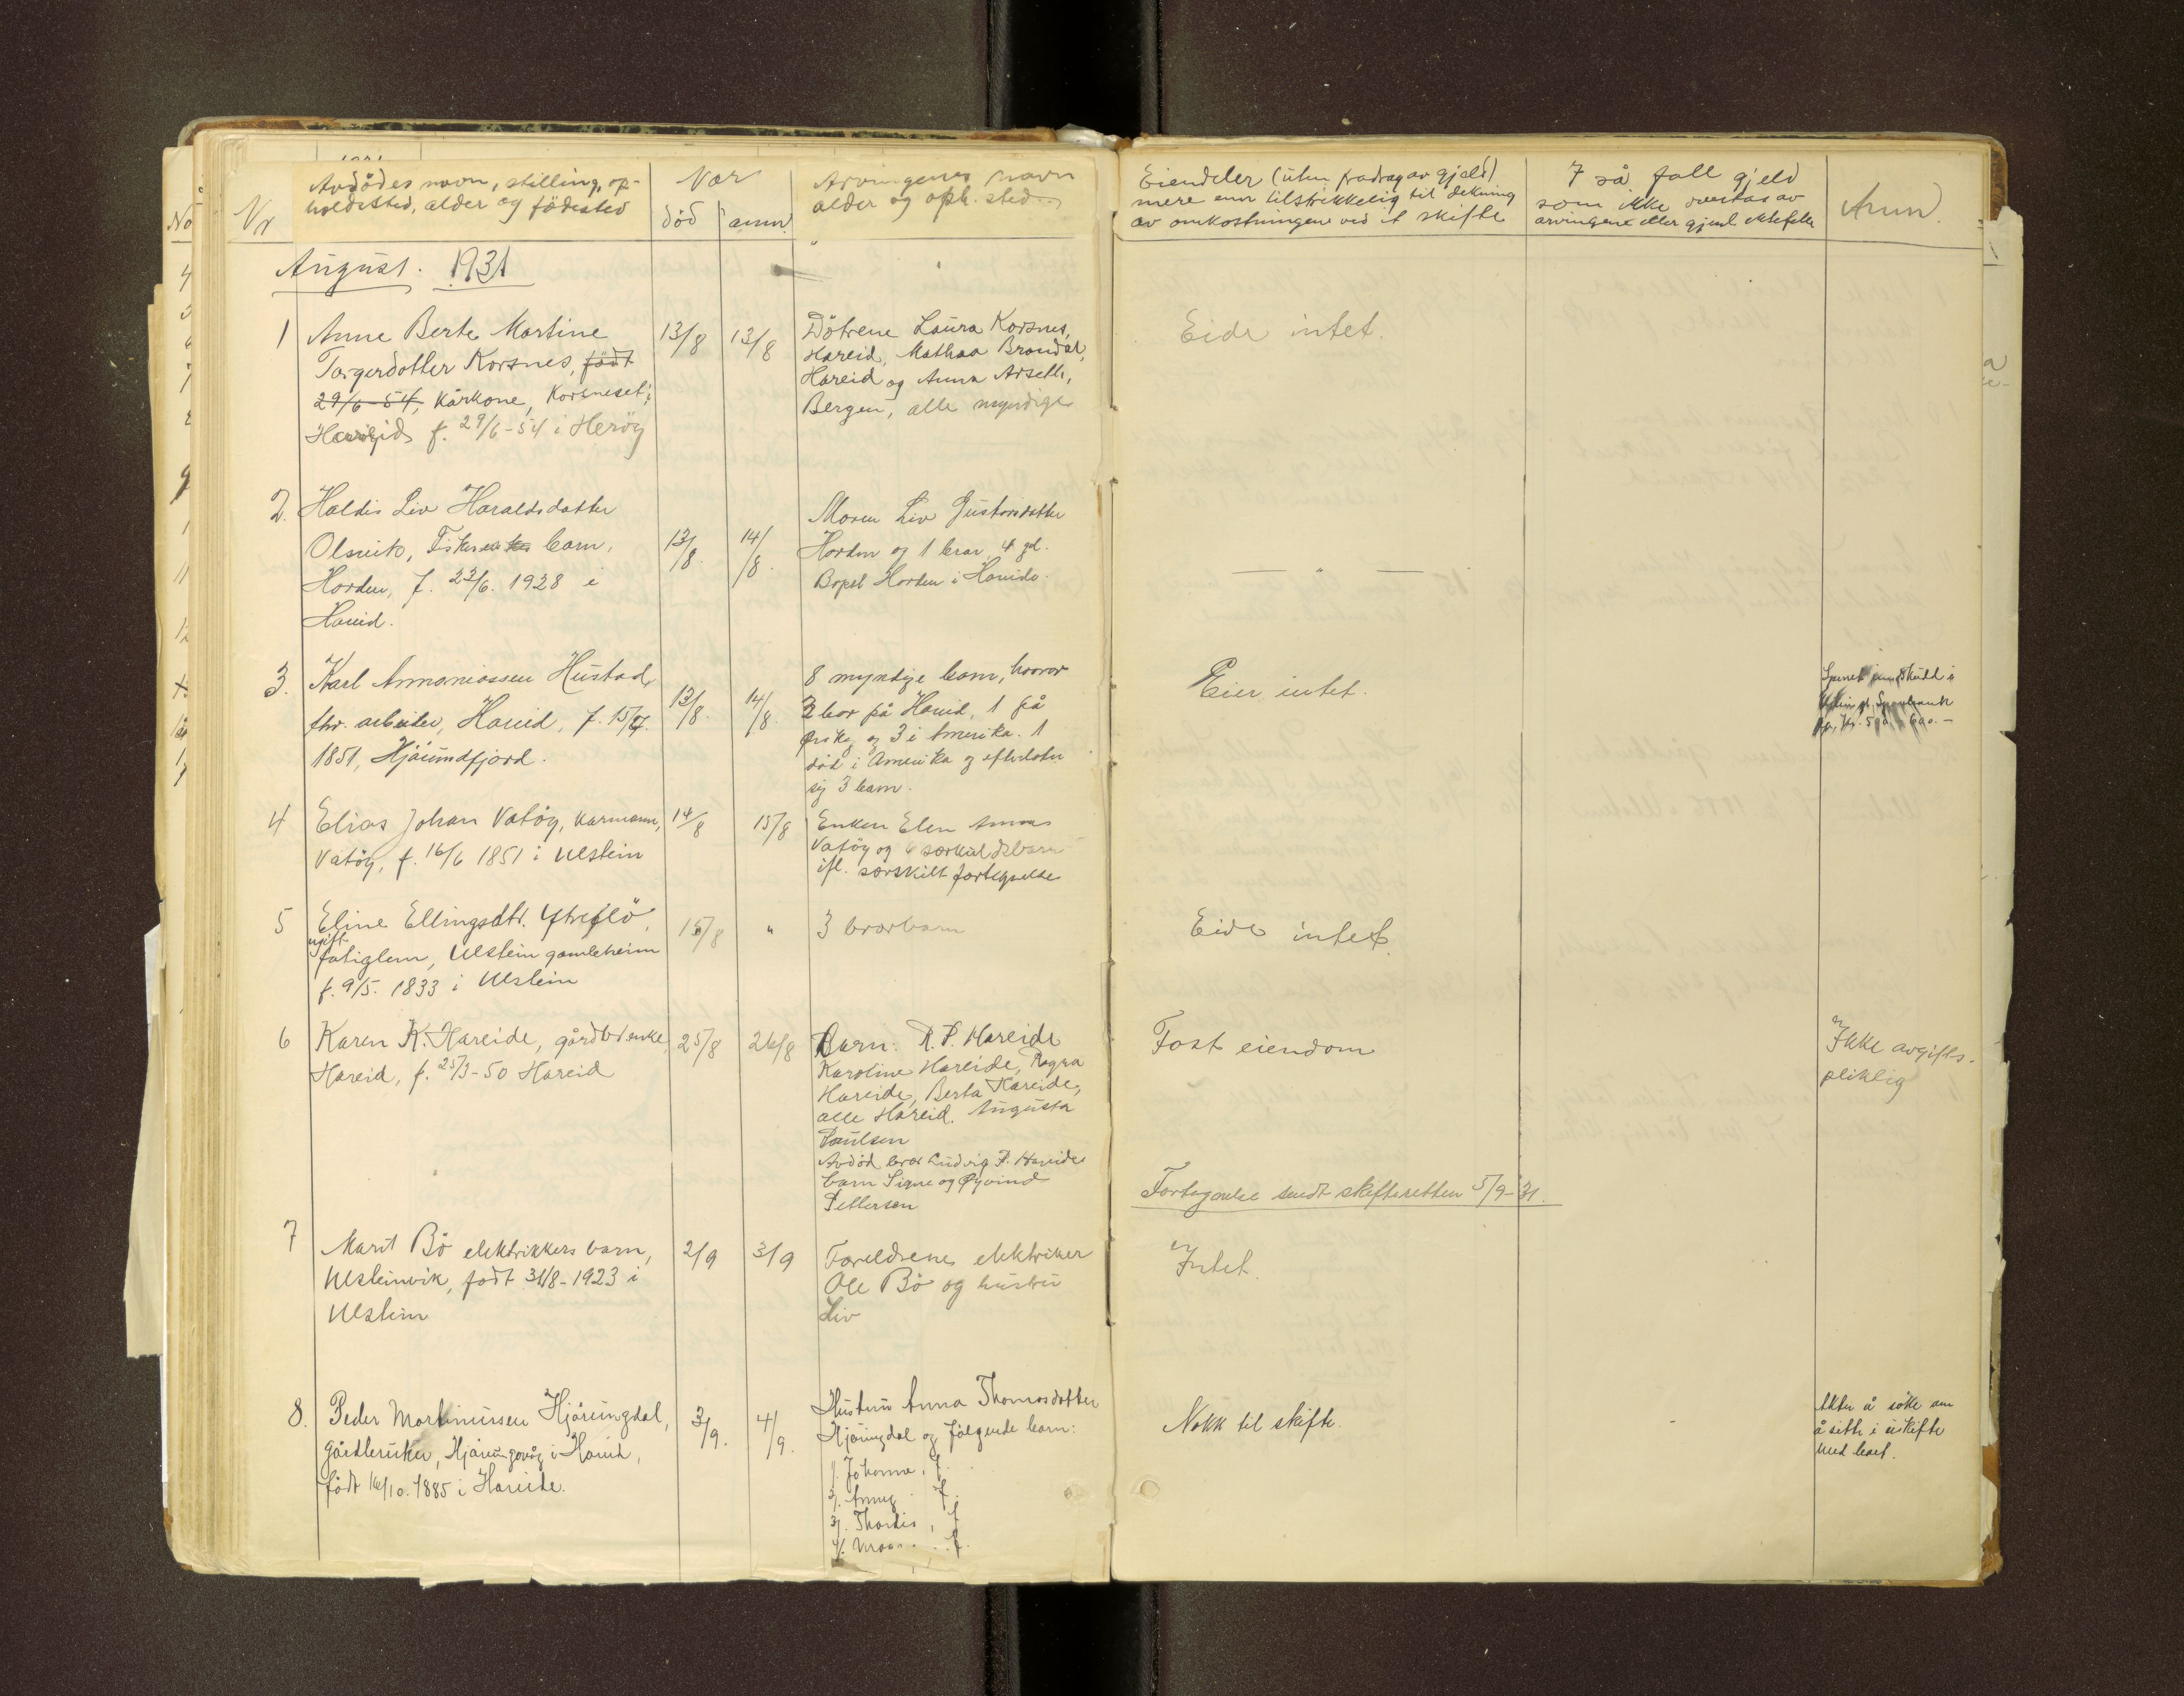 Nr
Avdødes navn, stilling, op-
holdssted, alder og fødested
Når
død
anm.
Arvingenes navn
alder og oph. sted
Eiendeler (uten fradrag av gjeld)
mere enn tilstrekkelig til dekning
av omkostningene ved et skifte
I så fall gjeld
som ikke overtas av
arvingene eller gjenl. ektefelle
Anm.
August. 1931
1
Anne Berte Martine
Torgerdotter Korsnes, født
29/6-54, Kårkone, Korsneset,
Hareid f. 29/6-54 i Herøy
13/8
13/8
Døtrene Laura Korsnes,
Hareid, Mathea Brandal,
Hareid og Anna Arseth,
Bergen, alle myndige
Eide intet.
2.
Haldis Liv Haraldsdatter
Olsvik, Fiskers barn,
Horden, f. 22/6. 1928 i
Hareid.
13/8.
14/8.
Moren Liv Gustavsdatter
Horden og 1 bror 4 gl.
Bopel Horden i Hareid.
— " —
3.
Karl Ananiassen Hustad,
fhv. arbeider, Hareid, f. 15/7.
1851, Hjørundfjord.
13/8.
14/8.
8 myndige barn, hvorav
3 bor på Hareid, 1 på
Ørskog og 3 i Amerika. 1
død i Amerika og efterlater
sig 3 barn.
Eier intet.
4
Elias Johan Vatøy, kårmann,
Vatøy, f. 16/6 1851 i Ulstein
14/8
15/8
Enken Elen Anna
Vatøy og 6 særkuldsbarn
ifl. særskilt fortegnelse
5
Eline Ellingsdtr. Ytreflø,
ugift
fatiglem, Ulstein gamleheim
f. 9/5. 1833 i Ulstein
15/8
"
3 brorbarn
Eide intet.
6
Karen K. Hareide, gårdb. enke,
Hareid, f. 25/3-50 Hareid
25/8
26/8
Barn: R. P. Hareide
Karoline Hareide, Ragna
Hareide, Berta Hareide,
alle Hareid. Augusta
Paulsen
Avdød bror Ludvig P. Hareides
barn Signe og Øyvind
Pettersen
Fast eiendom
Ikke avgifts-
pliktig
Fortegnelse sendt skifteretten 5/9-31.
7
Marit Bø elektrikkers barn,
Ulsteinvik, født 31/8-1923 i
Ulstein
2/9
3/9
Foreldrene elektriker
Ole Bø og hustru
Liv
Intet.
8.
Peder Martinussen Hjørungdal,
gårdbruker, Hjørungavåg i Hareid,
født 16/10. 1885 i Hareide.
3/9.
4/9.
Hustru Anna Thomasdatter
Hjørungdal og følgende barn:
1/. Johanna, f.
2/. Anny f.
3/. Thordis, f.
4/. f.
Nokk til skifte.
Akter å søke om
å sitte i uskifte
med boet.